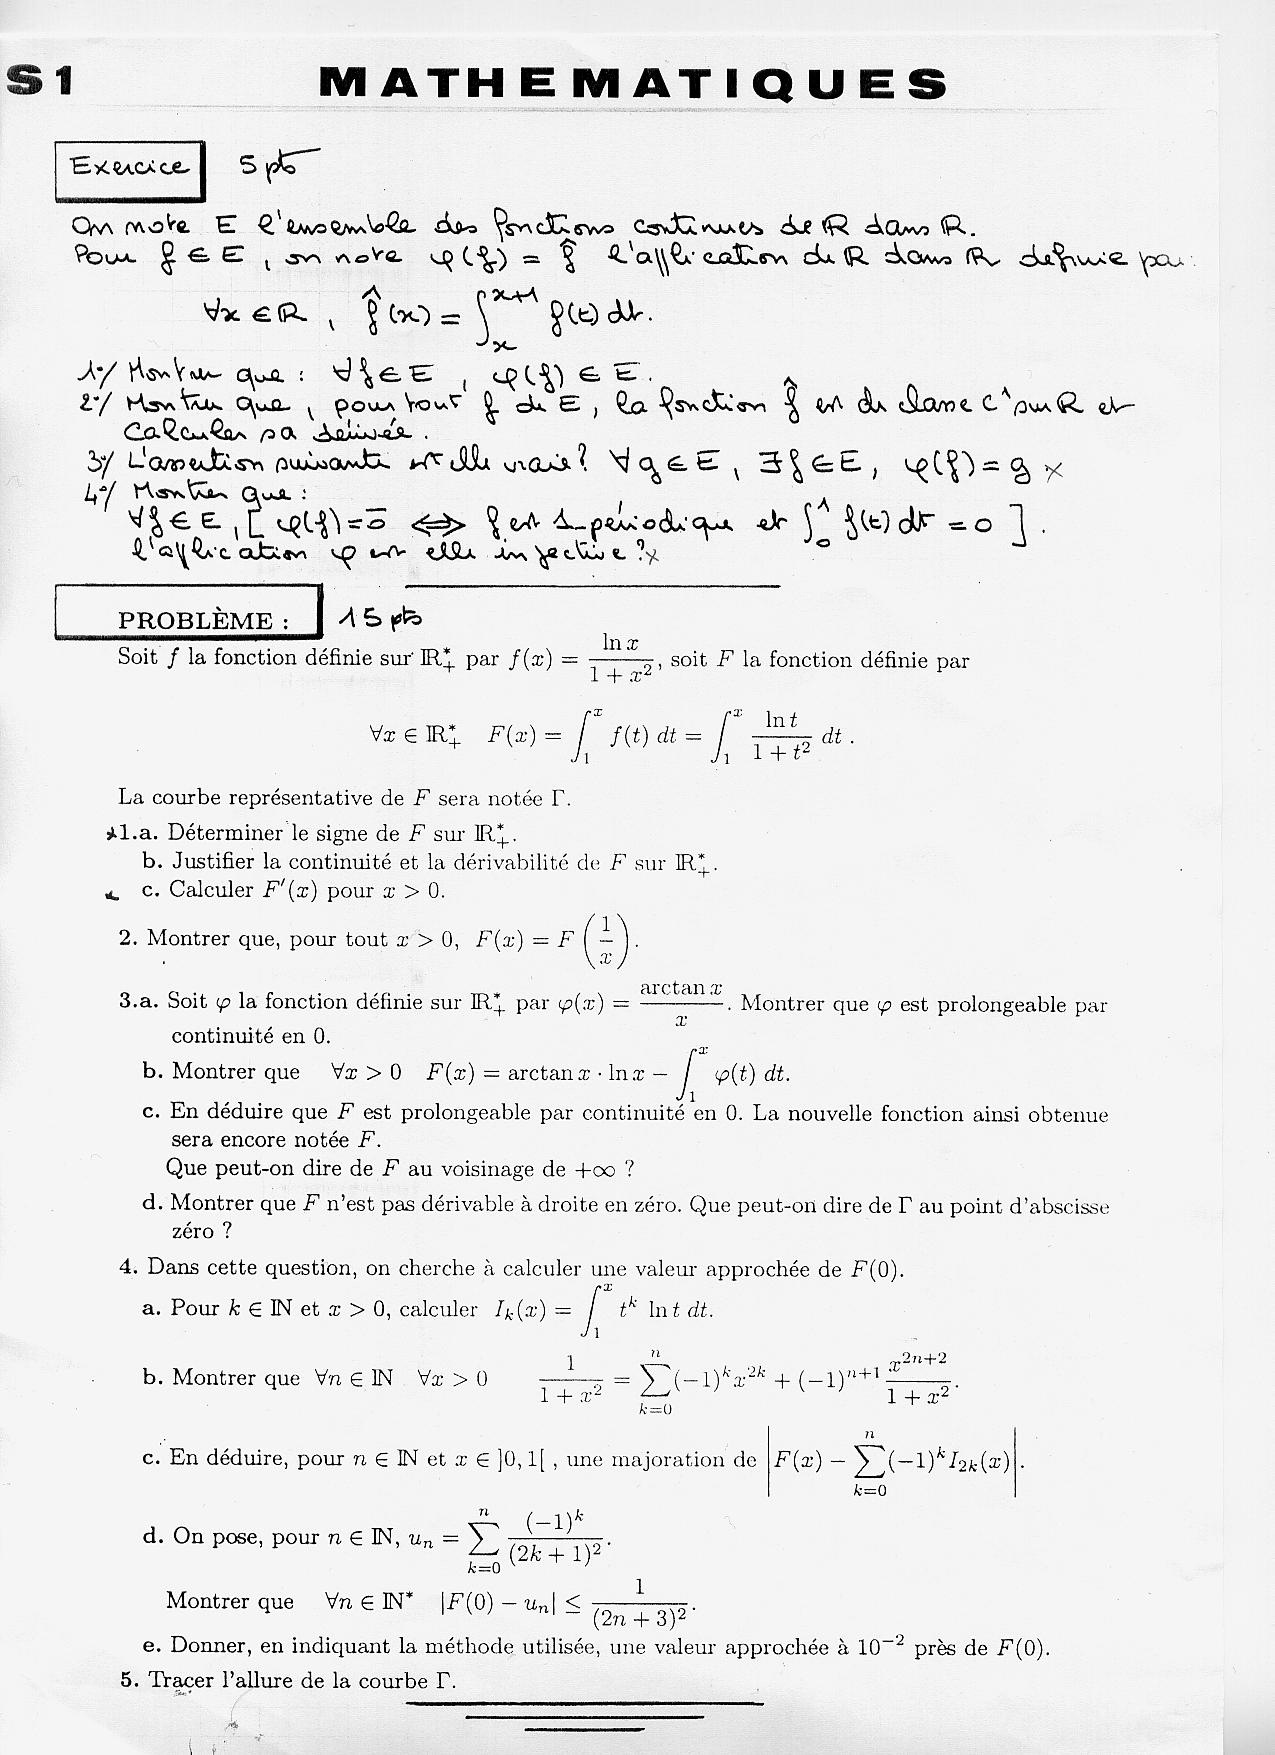 S1 MATHEMATIQUES
Exercice 5 pts
On note E l'ensemble des fonctions continues de ℝ dans ℝ.
Pour f ∈ E, on note φ(f) = f̂ l'application de ℝ dans ℝ définie par :
∀x ∈ ℝ, f̂(x) = ∫_x^{x+1} f(t) dt.
1°/ Montrer que : ∀f ∈ E, φ(f) ∈ E.
2°/ Montrer que, pour tout f de E, la fonction f̂ est de classe C¹ sur ℝ et
calculer sa dérivée.
3°/ L'assertion suivante est elle vraie? ∀g ∈ E, ∃f ∈ E, φ(f) = g ×
4°/ Montrer que :
∀f ∈ E, [ φ(f) = 0̄ ⟺ f est 1-périodique et ∫_0^1 f(t) dt = 0 ].
l'application φ est elle injective ? ×
PROBLÈME : 15 pts
Soit f la fonction définie sur ℝ₊* par f(x) = ln x / (1 + x²), soit F la fonction définie par
∀x ∈ ℝ₊* F(x) = ∫_1^x f(t) dt = ∫_1^x ln t / (1 + t²) dt .
La courbe représentative de F sera notée Γ.
1.a. Déterminer le signe de F sur ℝ₊*.
b. Justifier la continuité et la dérivabilité de F sur ℝ₊*.
c. Calculer F'(x) pour x > 0.
2. Montrer que, pour tout x > 0, F(x) = F(1/x).
3.a. Soit φ la fonction définie sur ℝ₊* par φ(x) = arctan x / x. Montrer que φ est prolongeable par
continuité en 0.
b. Montrer que ∀x > 0 F(x) = arctan x · ln x − ∫_1^x φ(t) dt.
c. En déduire que F est prolongeable par continuité en 0. La nouvelle fonction ainsi obtenue
sera encore notée F.
Que peut-on dire de F au voisinage de +∞ ?
d. Montrer que F n'est pas dérivable à droite en zéro. Que peut-on dire de Γ au point d'abscisse
zéro ?
4. Dans cette question, on cherche à calculer une valeur approchée de F(0).
a. Pour k ∈ ℕ et x > 0, calculer I_k(x) = ∫_1^x t^k ln t dt.
b. Montrer que ∀n ∈ ℕ ∀x > 0 1/(1 + x²) = ∑_{k=0}^n (−1)^k x^{2k} + (−1)^{n+1} x^{2n+2}/(1 + x²).
c. En déduire, pour n ∈ ℕ et x ∈ ]0, 1[ , une majoration de |F(x) − ∑_{k=0}^n (−1)^k I_{2k}(x)|.
d. On pose, pour n ∈ ℕ, u_n = ∑_{k=0}^n (−1)^k/(2k + 1)².
Montrer que ∀n ∈ ℕ* |F(0) − u_n| ≤ 1/(2n + 3)².
e. Donner, en indiquant la méthode utilisée, une valeur approchée à 10⁻² près de F(0).
5. Tracer l'allure de la courbe Γ.